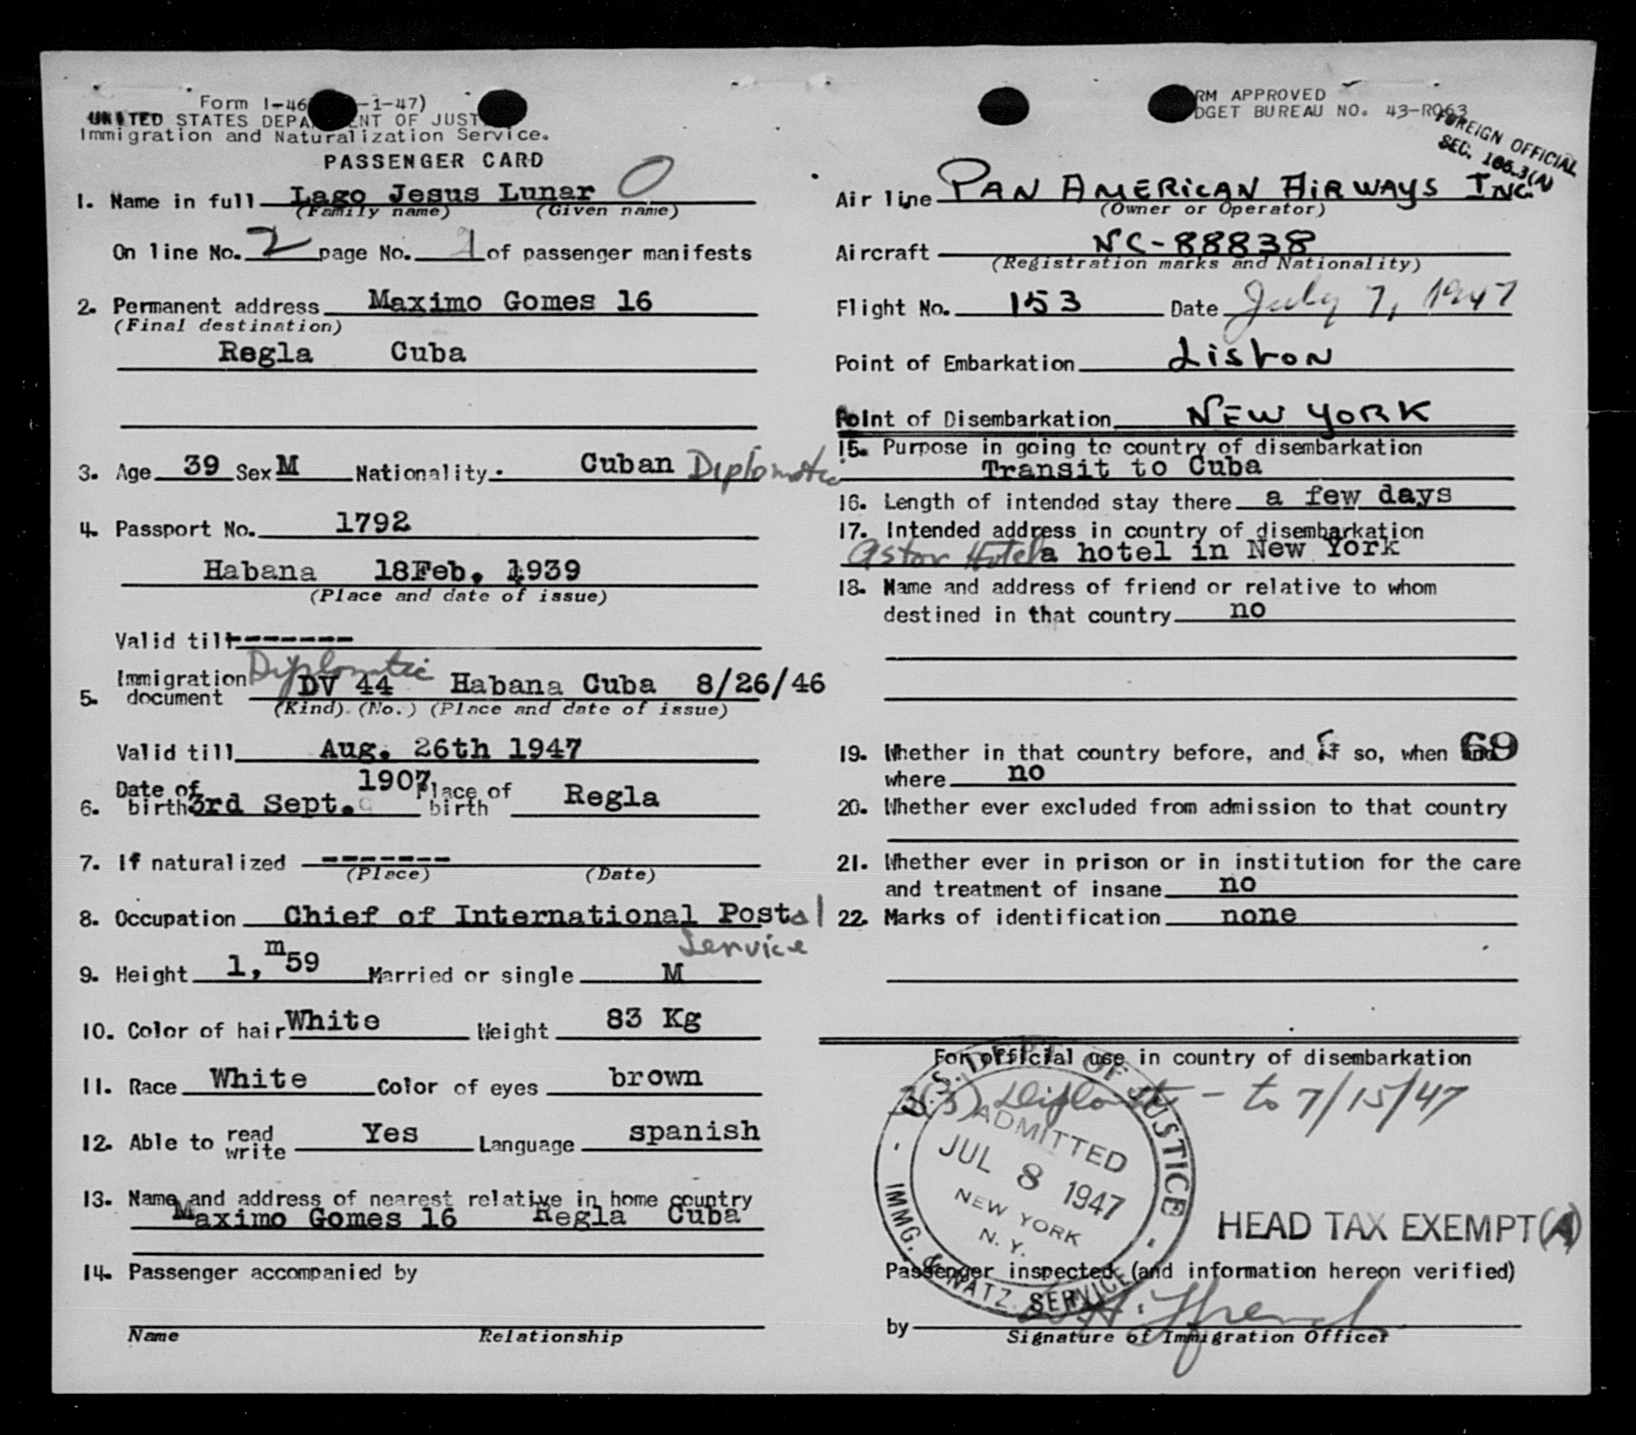 Form I-46 -1-47)
UNITED STATES DEPA ENT OF JUST
Immigration and Naturalization Service.
PASSENGER CARD
1. Name in full Lago Jesus Lunar O
(Family name) (Given name)
On line No. 2 page No. 1 of passenger manifests
2. Permanent address Maximo Gomes 16
(Final destination)
Regla Cuba
3. Age 39 Sex M Nationality Cuban Diplomatic
4. Passport No. 1792
Habana 18Feb. 1939
(Place and date of issue)
Valid till -------
Diplomatic
5. Immigration document DV 44 Habana Cuba 8/26/46
(Kind) (No.) (Place and date of issue)
Valid till Aug. 26th 1947
6. Date of birth 3rd Sept. 1907 Place of birth Regla
7. If naturalized -------
(Place) (Date)
8. Occupation Chief of International Postal
Service
9. Height 1,m59 Married or single M
10. Color of hair White Weight 83 Kg
11. Race White Color of eyes brown
12. Able to read write Yes Language spanish
13. Name and address of nearest relative in home country
Maximo Gomes 16 Regla Cuba
14. Passenger accompanied by
Name Relationship
RM APPROVED
DGET BUREAU NO. 43-R063
FOREIGN OFFICIAL
SEC. 105.3(A)
Air line PAN AMERICAN AIRWAYS INC
(Owner or Operator)
Aircraft NC-88838
(Registration marks and Nationality)
Flight No. 153 Date July 7, 1947
Point of Embarkation Lisbon
Point of Disembarkation NEW YORK
15. Purpose in going to country of disembarkation
Transit to Cuba
16. Length of intended stay there a few days
17. Intended address in country of disembarkation
Astor Hotel a hotel in New York
18. Name and address of friend or relative to whom
destined in that country no
19. Whether in that country before, and if so, when and
69
where no
20. Whether ever excluded from admission to that country
21. Whether ever in prison or in institution for the care
and treatment of insane no
22. Marks of identification none
For official use in country of disembarkation
3(3) Diplomatic - to 7/15/47
U.S. DEPT. OF JUSTICE
ADMITTED
JUL 8 1947
NEW YORK
N. Y.
IMMG. & NATZ. SERVICE
HEAD TAX EXEMPT (A)
Passenger inspected (and information hereon verified)
by
Signature of Immigration Officer